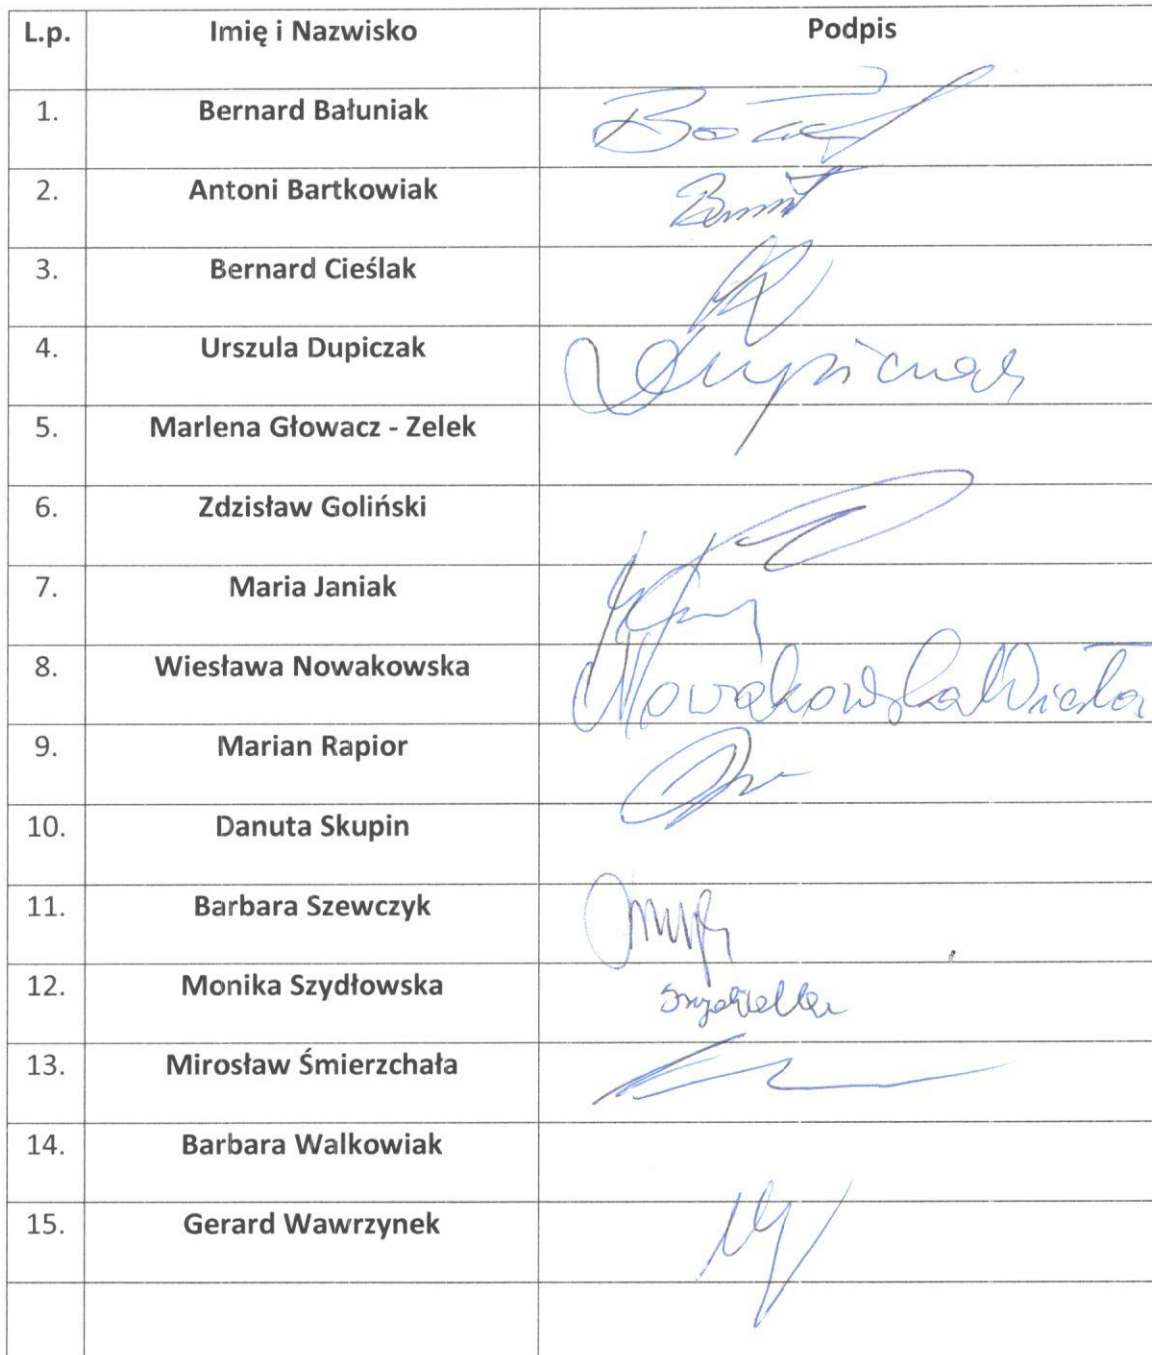 L.p. Imię i Nazwisko Podpis
1. Bernard Bałuniak
2. Antoni Bartkowiak
3. Bernard Cieślak
4. Urszula Dupiczak Dupiczak
5. Marlena Głowacz - Zelek
6. Zdzisław Goliński
7. Maria Janiak
8. Wiesława Nowakowska Nowakowska Wiesła
9. Marian Rapior
10. Danuta Skupin
11. Barbara Szewczyk
12. Monika Szydłowska
13. Mirosław Śmierzchała
14. Barbara Walkowiak
15. Gerard Wawrzynek